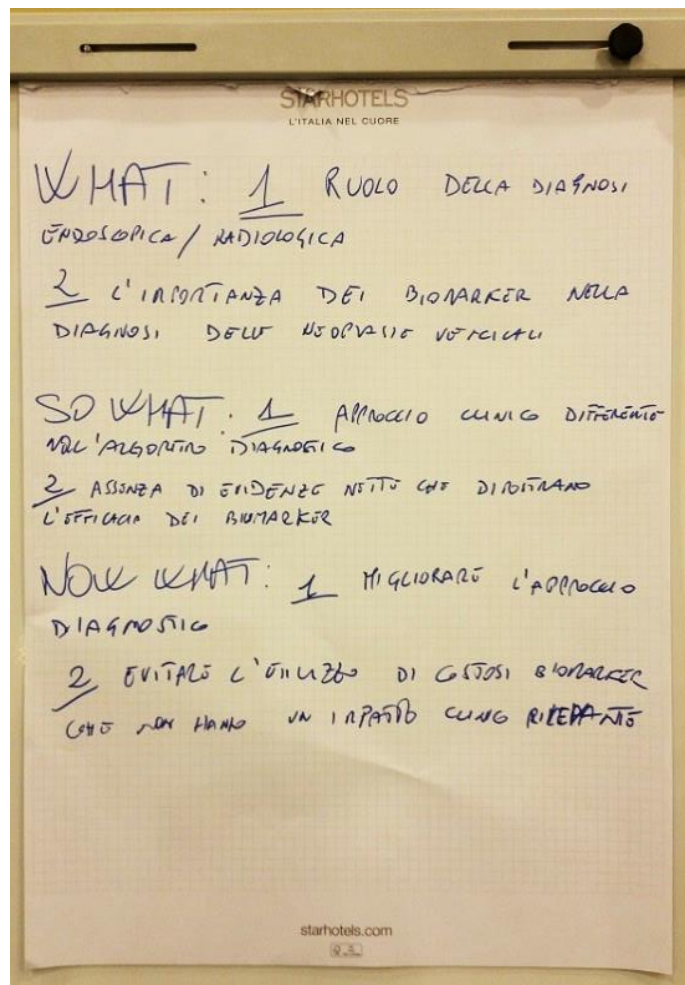 STARHOTELS
L'ITALIA NEL CUORE
WHAT: 1 RUOLO DELLA DIAGNOSI
ENDOSCOPICA / RADIOLOGICA
2 L'IMPORTANZA DEI BIOMARKER NELLA
DIAGNOSI DELLE NEOPLASIE VESCICALI
SO WHAT: 1 APPROCCIO CLINICO DIFFERENTE
NELL'ALGORITMO DIAGNOSTICO
2 ASSENZA DI EVIDENZE NETTE CHE DIMOSTRANO
L'EFFICACIA DEI BIOMARKER
NOW WHAT: 1 MIGLIORARE L'APPROCCIO
DIAGNOSTICO
2 EVITARE L'UTILIZZO DI COSTOSI BIOMARKER
CHE NON HANNO UN IMPATTO CLINICO RILEVANTE
starhotels.com